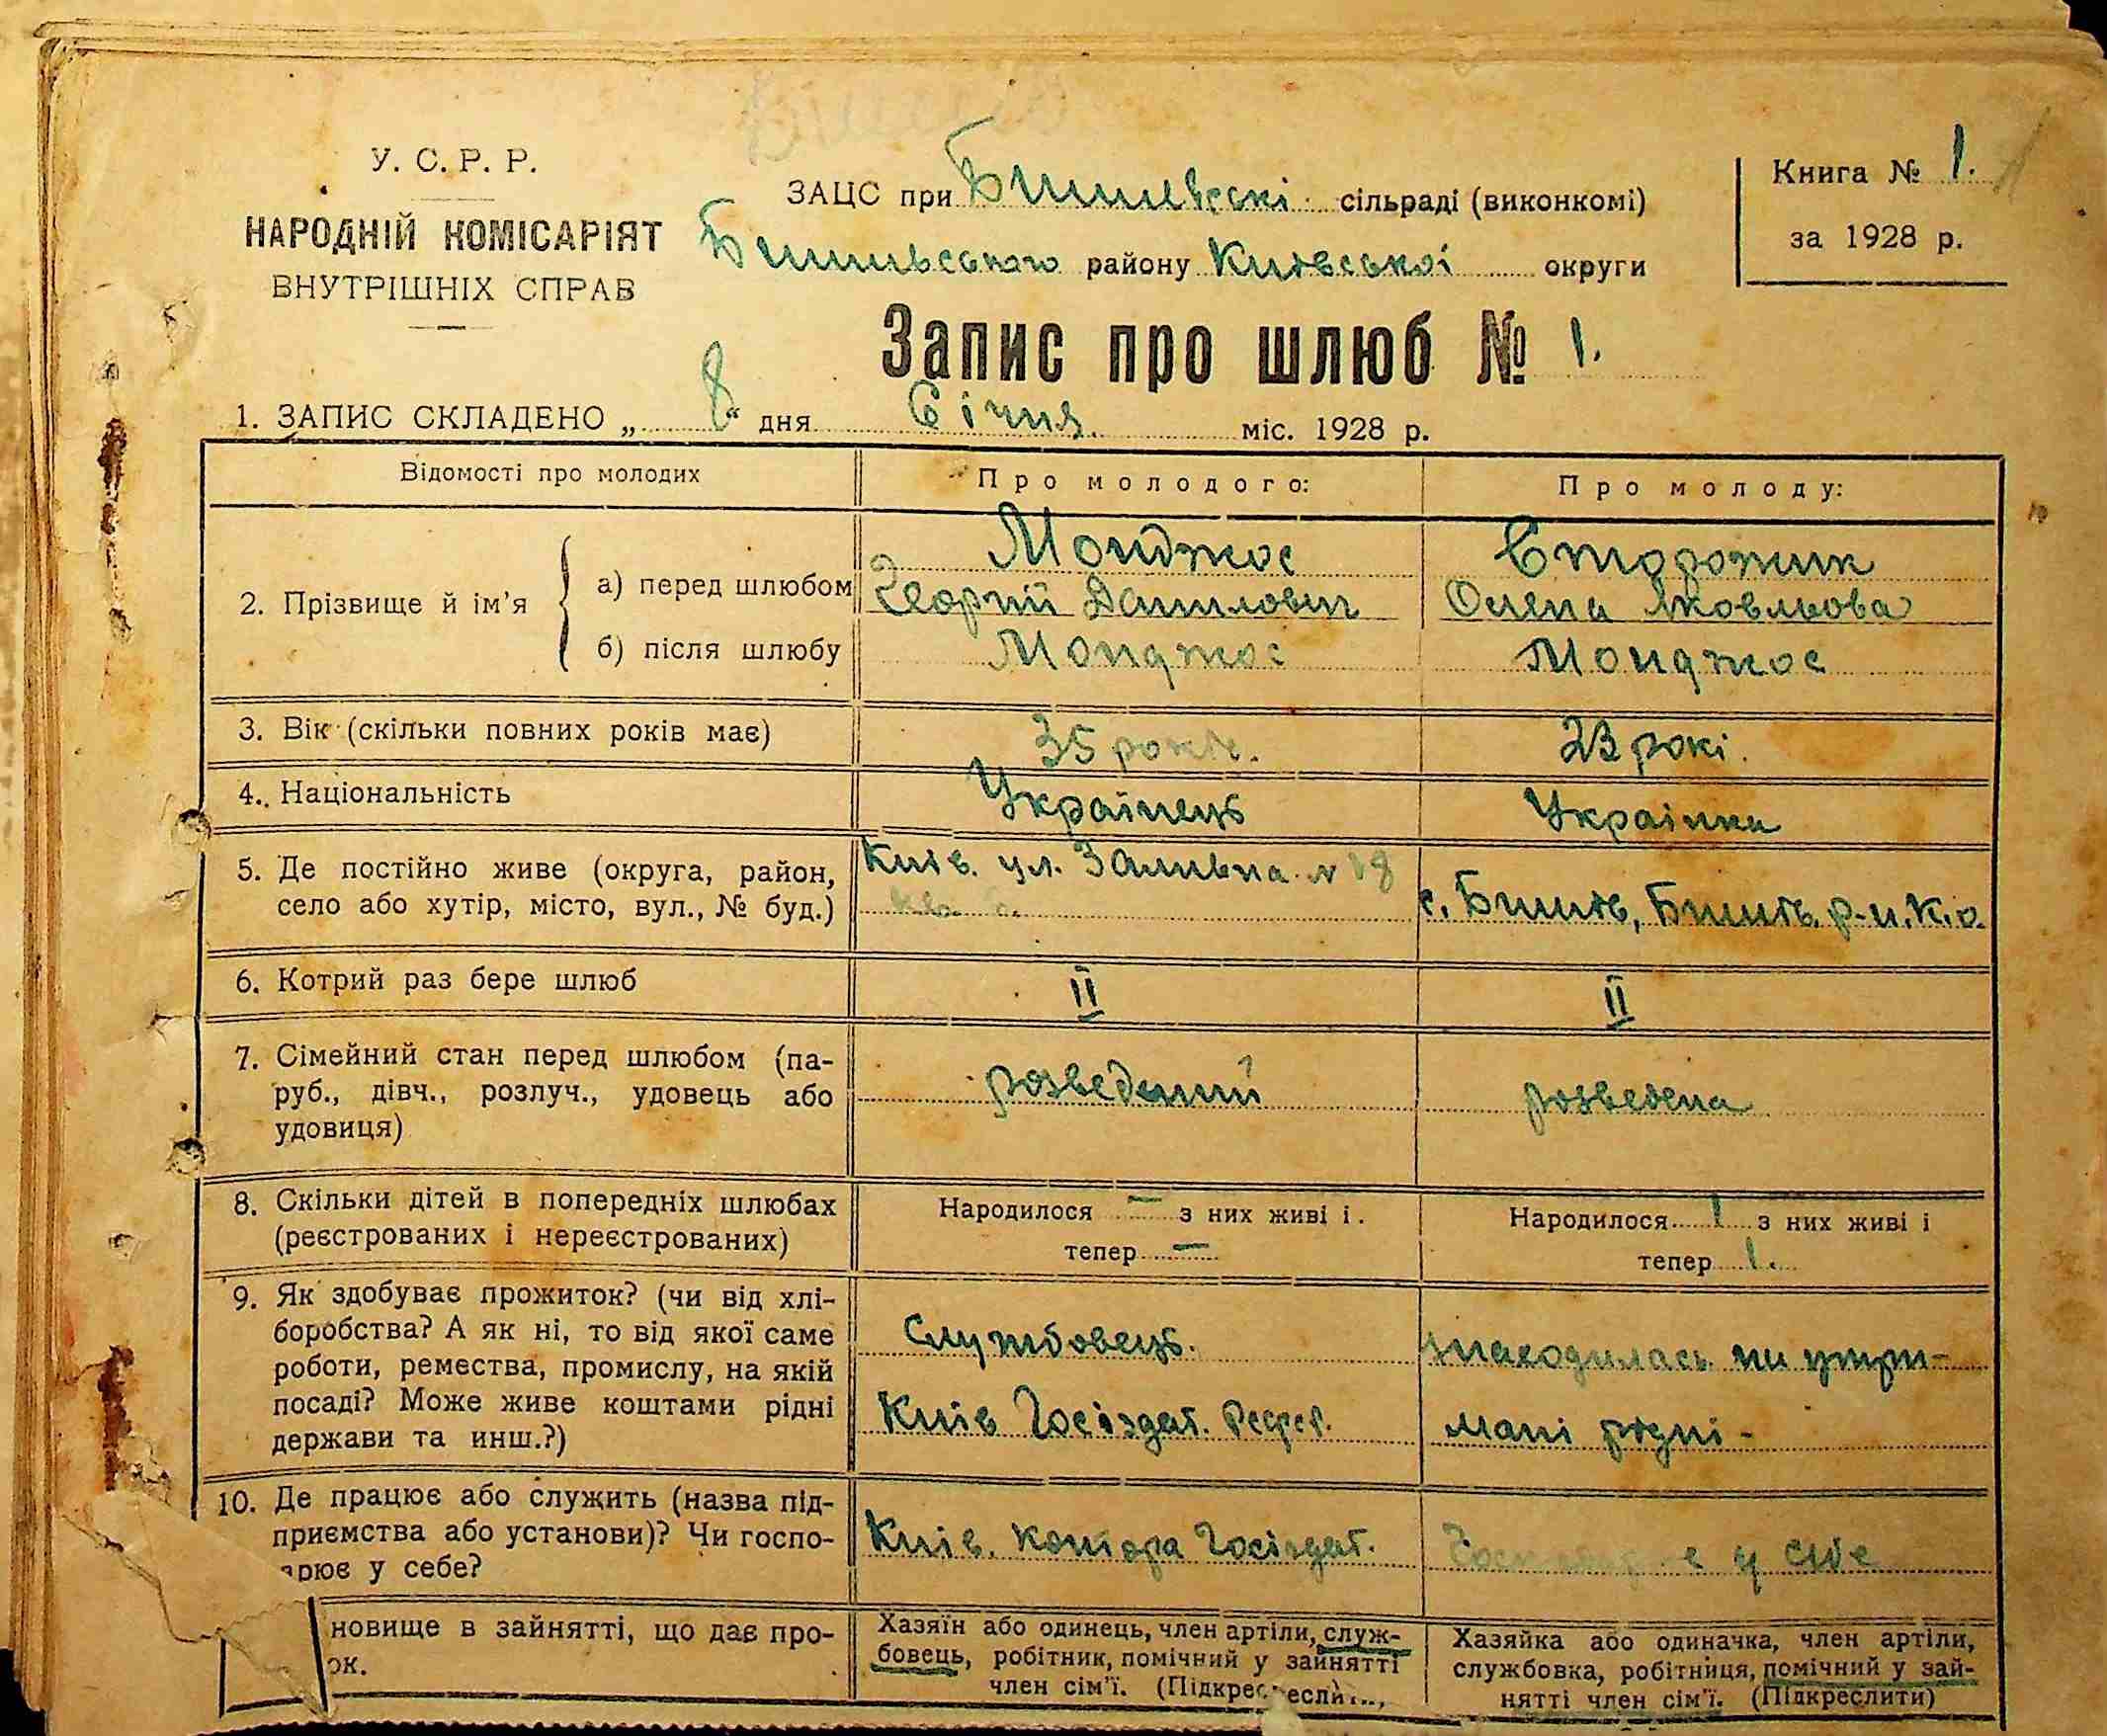 У. С. Р. Р.
НАРОДНІЙ КОМІСАРІЯТ
ВНУТРІШНІХ СПРАВ
ЗАЦС при Бишевскі сільраді (виконкомі)
Бишивського району Київської округи
Книга № 1.
за 1928 р.
Запис про шлюб № 1.
1. ЗАПИС СКЛАДЕНО „ 8 “ дня Січня. міс. 1928 р.
Відомості про молодих
Про молодого:
Про молоду:
2. Прізвище й ім’я
а) перед шлюбом
Монджос
Георгий Данилович
Сторожик
Олена Яковльова
б) після шлюбу
Монджос
Монджос
3. Вік (скільки повних років має)
35 років.
23 рокі.
4. Національність
Українець
Украінка
5. Де постійно живе (округа, район,
село або хутір, місто, вул., № буд.)
Київ. ул. Заливна № 18
кв.
с. Бишів, Бишів. р-н. К.о.
6. Котрий раз бере шлюб
II
II
7. Сімейний стан перед шлюбом (па-
руб., дівч., розлуч., удовець або
удовиця)
розведений
розведена
8. Скільки дітей в попередніх шлюбах
(реєстрованих і нереєстрованих)
Народилося — з них живі і
тепер —
Народилося 1 з них живі і
тепер 1.
9. Як здобуває прожиток? (чи від хлі-
боробства? А як ні, то від якої саме
роботи, ремества, промислу, на якій
посаді? Може живе коштами рідні
держави та инш.?)
Службовець.
Київ Госіздат.
знаходилась на утри-
мані рідні -
10. Де працює або служить (назва під-
приємства або установи)? Чи госпо-
арює у себе?
Київ. контора Госіздат.
є у сибе
новище в зайнятті, що дає про-
ок.
Хазяїн або одинець, член артіли, служ-
бовець, робітник, помічний у зайнятті
член сім’ї.
Хазяйка або одиначка, член артіли,
службовка, робітниця, помічний у зай-
нятті член сім’ї. (Підкреслити)